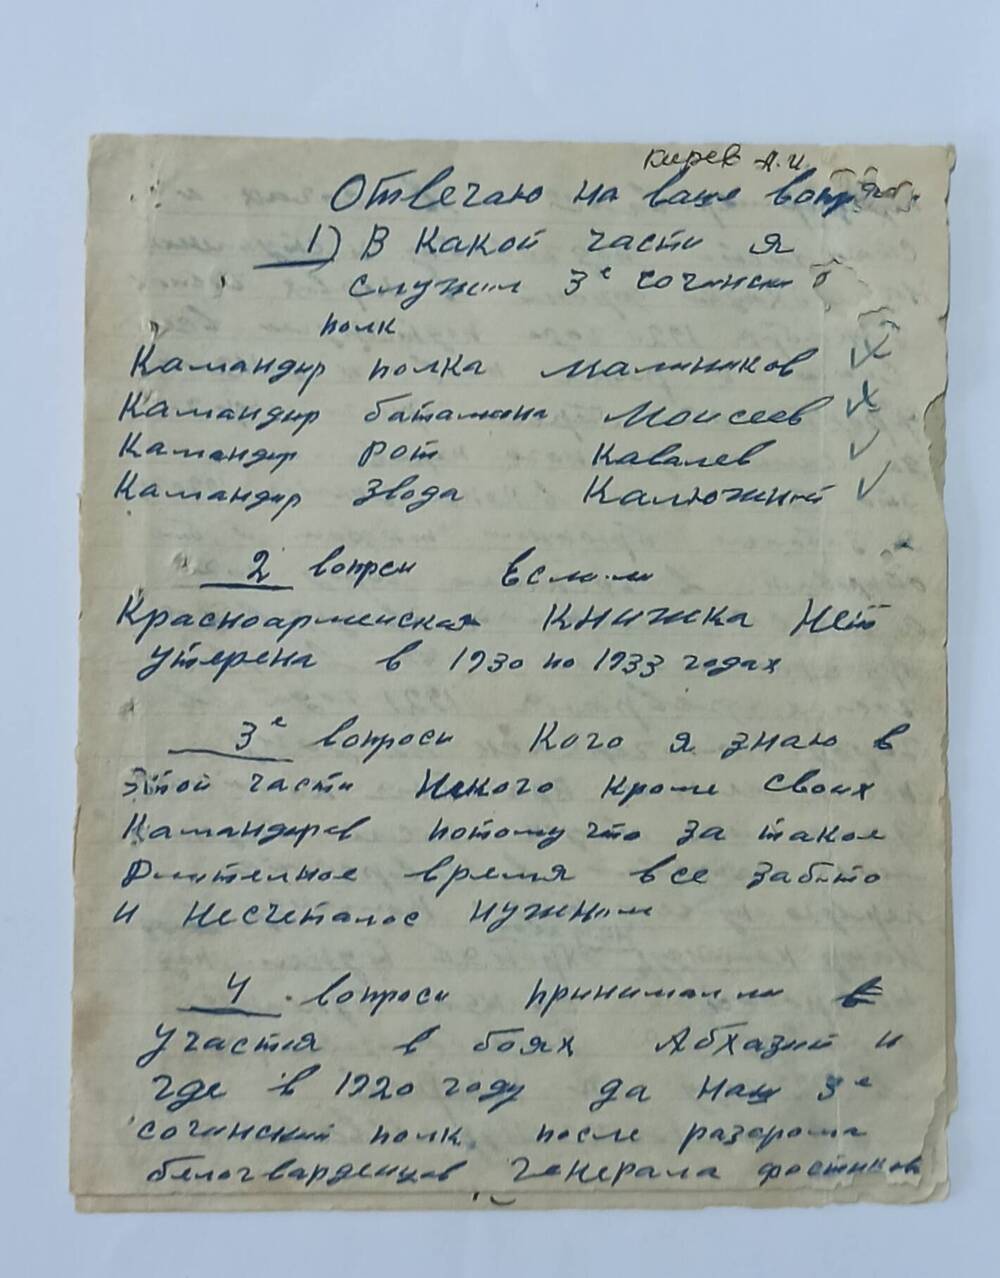 Кирев А.И.
Отвечаю на ваше
1) В Какой части я
служил 3е сочинский
полк
Камандир полка Малников
Камандир баталиона Моисеев
Камандир рот Кавалев
Камандир звода Калюжний
2 вопрси
Красноармейская Книжка Нет
утерена в 1930 по 1933 годах
3е вопроси Кого я знаю в
этой части Некого кроме своих
Камандирев потому что за такое
Длителное время все забыто
и несчеталос нужным
4 вопроси принимал ли
участия в боях Абхазий и
где в 1920 году да наш 3е
сочинский полк, после разгрома
белогварденцов генерала фостиков